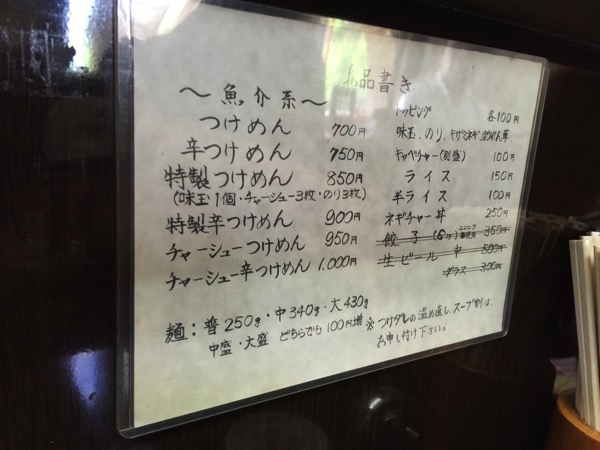 お品書き
〜魚介系〜
つけめん 700円
辛つけめん 750円
特製つけめん 850円
(味玉1個・チャーシュー3枚・のり3枚)
特製辛つけめん 900円
チャーシューつけめん 950円
チャーシュー辛つけめん 1,000円
トッピング 各100円
味玉、のり、キザミネギ、ほうれん草、
キャベチャー(別盛) 100円
ライス 150円
半ライス 100円
ネギチャー丼 250円
餃子(6ヶ)ニンニク 350円
生ビール 中 500円
グラス 300円
麺:普250g・中340g・大430g
中盛・大盛 どちらでも100円増
※つけダレの温め直し、スープ割は、
お申し付け下さい。